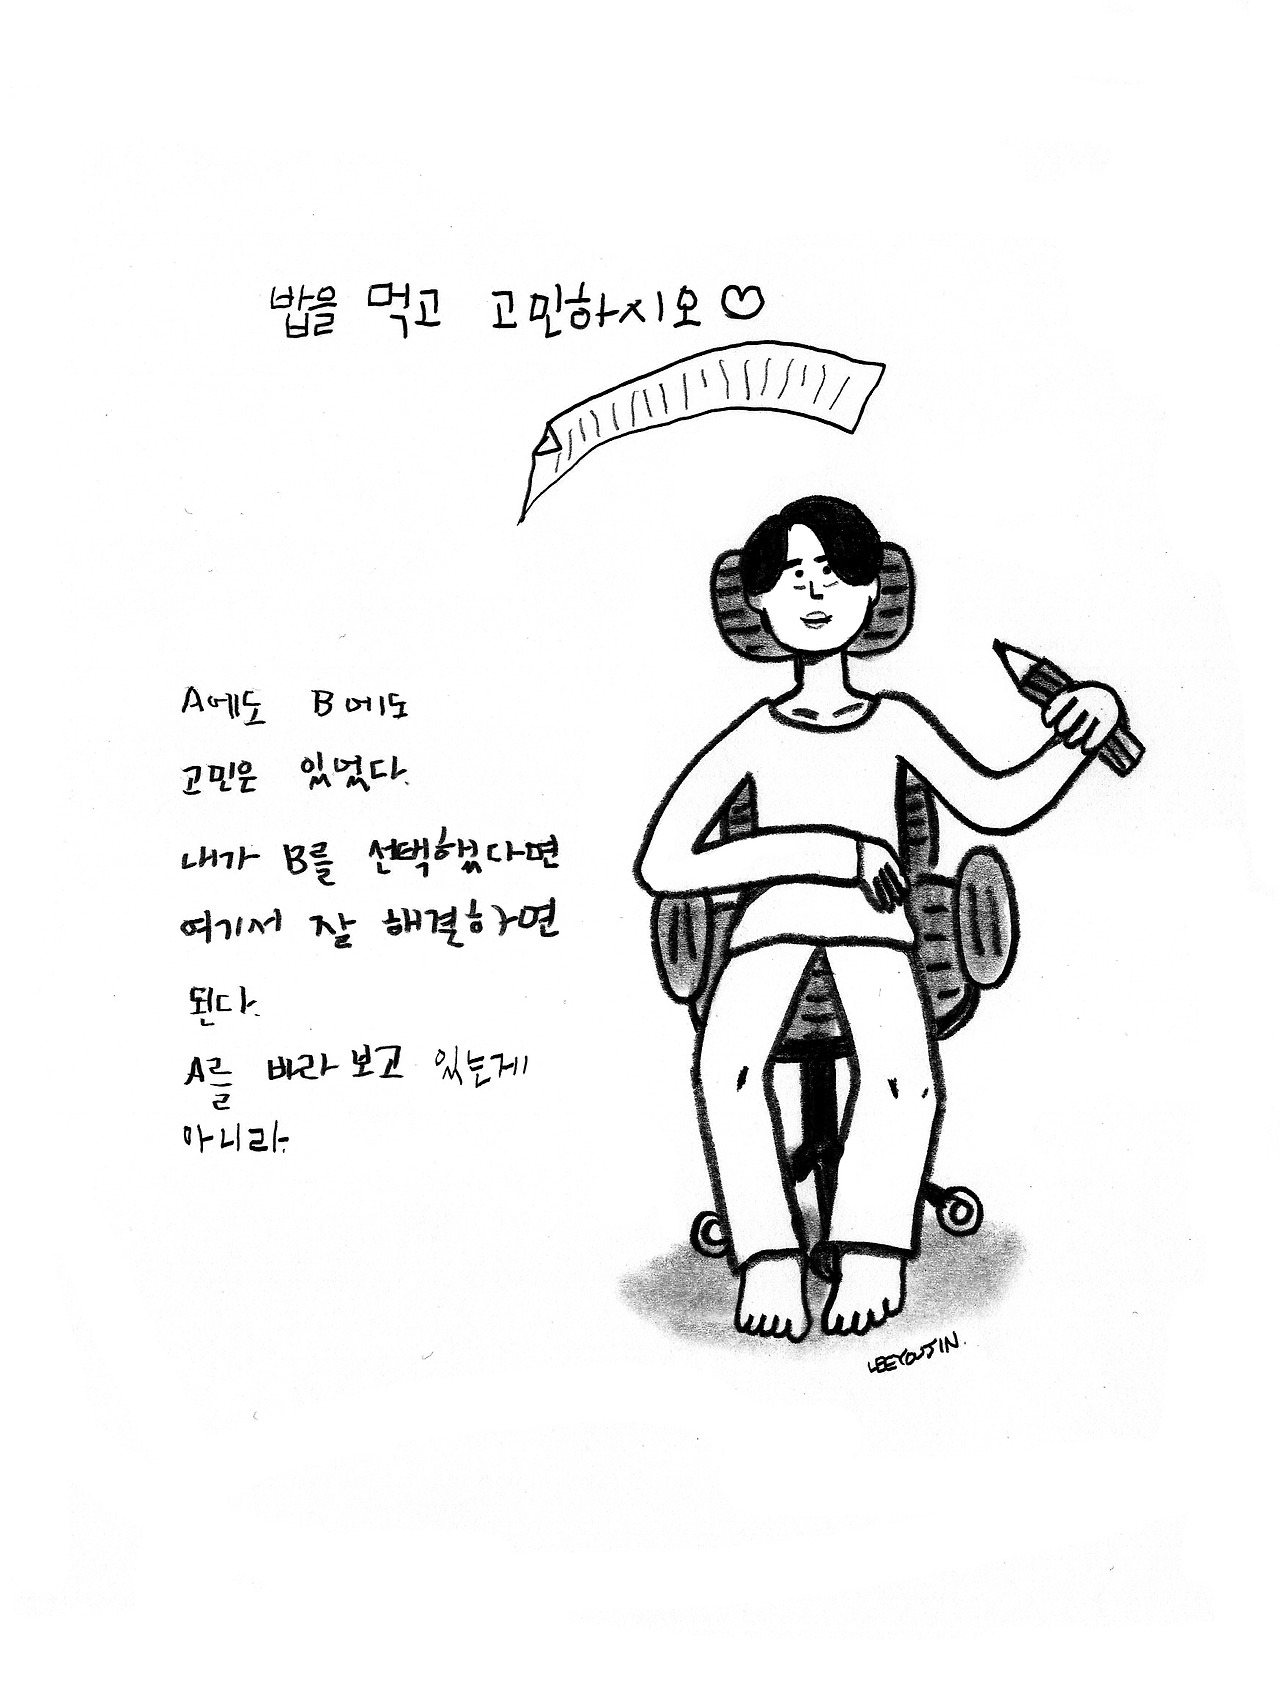 밥을 먹고 고민하시오♡
A에도 B에도
고민은 있었다.
내가 B를 선택했다면
여기서 잘 해결하면
된다.
A를 바라보고 있는게
아니라.
LEEYOUJIN.